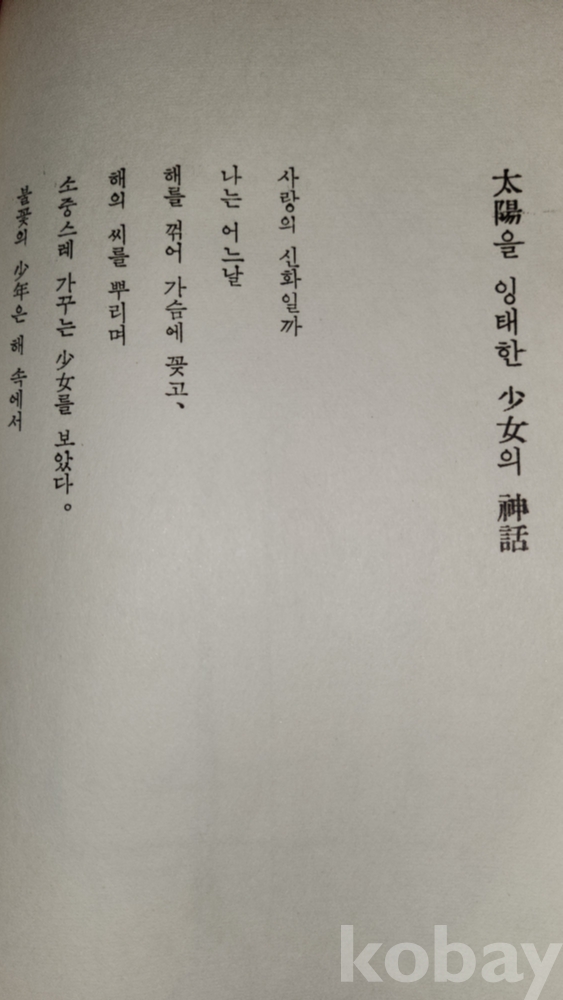 太陽을 잉태한 少女의 神話
사랑의 신화일까
나는 어느날
해를 꺾어 가슴에 꽂고、
해의 씨를 뿌리며
소중스레 가꾸는 少女를 보았다。
불꽃의 少年은 해 속에서
kobay